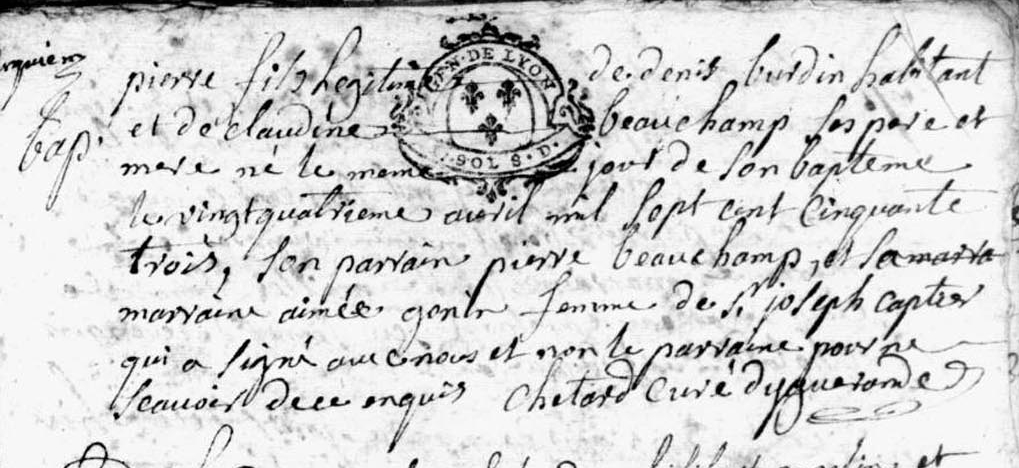 bap.
pierre fils legitime de denis burdin habitant
GEN. DE LYON
SOLS. D.
et de claudine beauchamp ses pere et
mere né le meme jour de son bapteme
le vingtquatrieme avril mil sept cent cinquante
trois, son parrain pierre beauchamp, et sa marra
marraine aimée genin femme de Sr joseph captier
qui a signé avec nous et non le parraine pour ne
scavoir de ce enquis chetard curé dyguerande